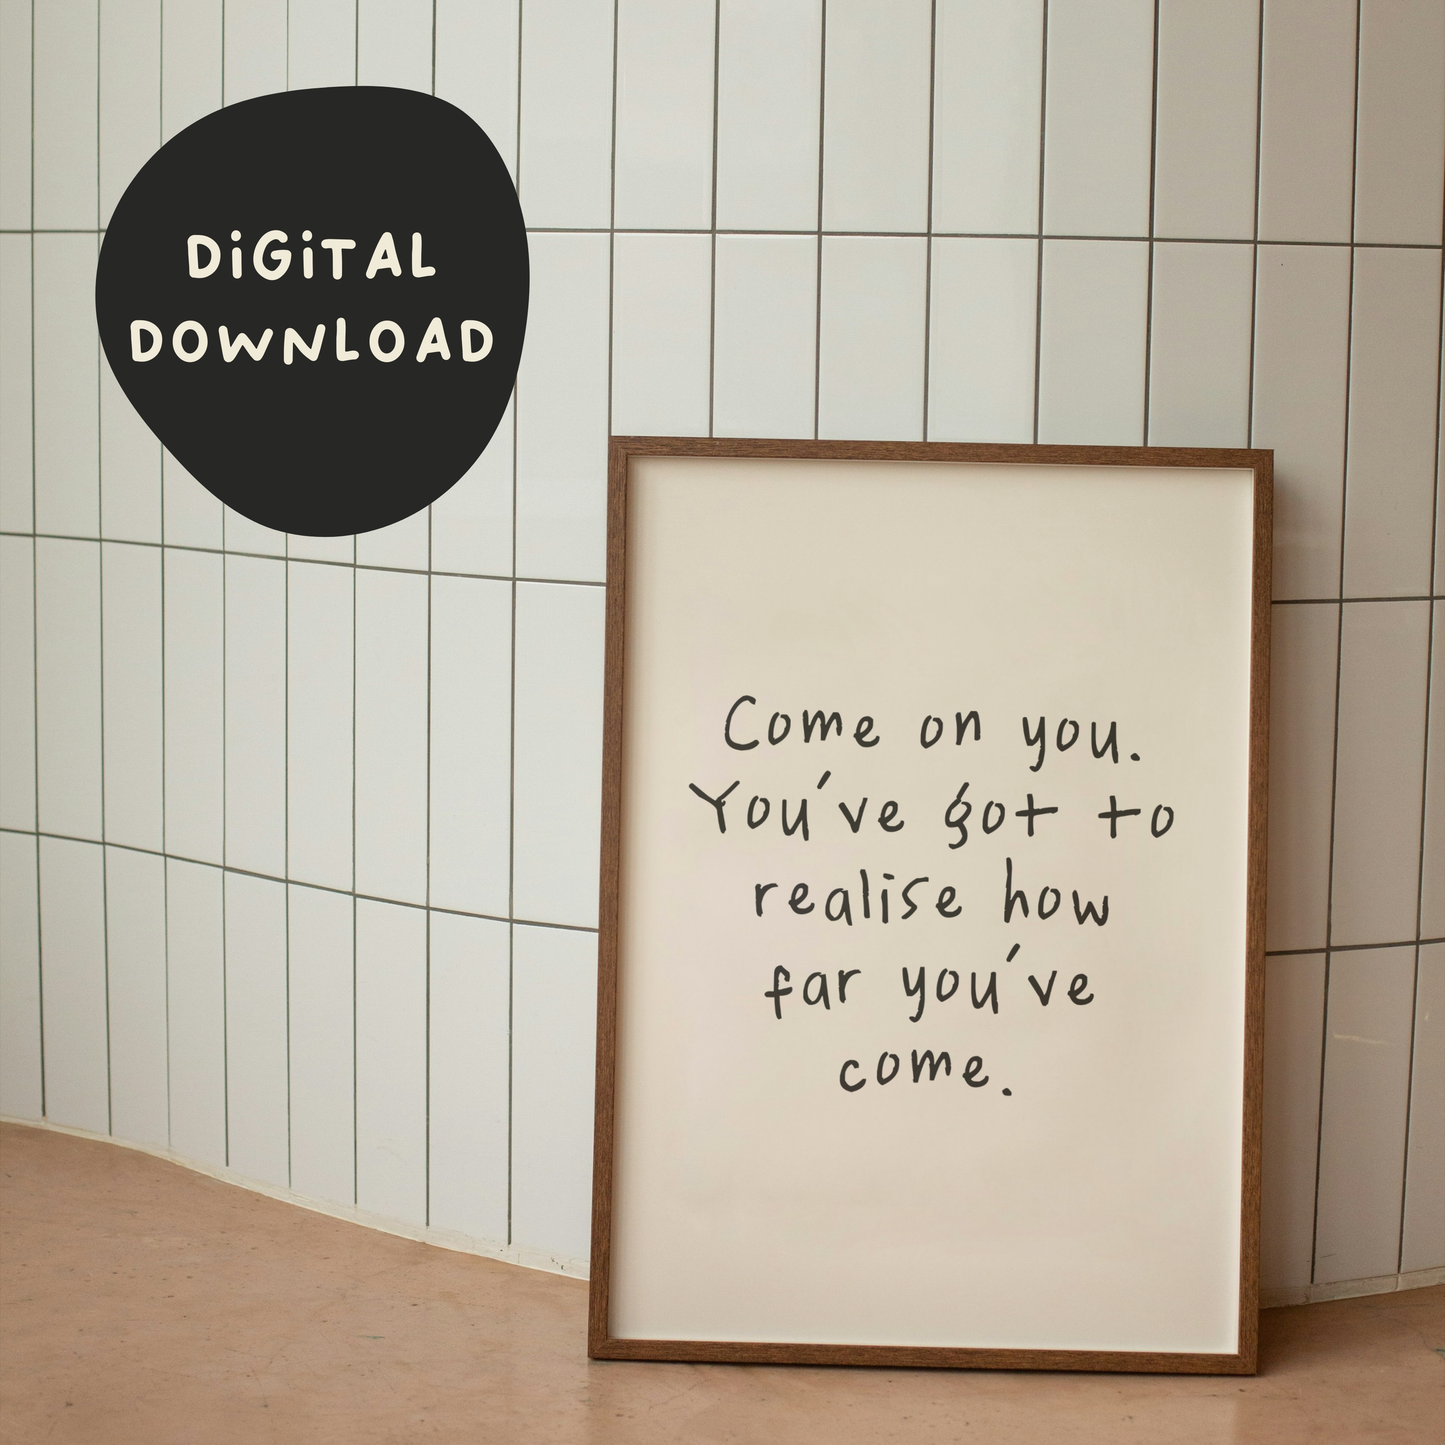 DiGiTAL
DOWNLOAD
Come on you.
You've got to
realise how
far you've
come.